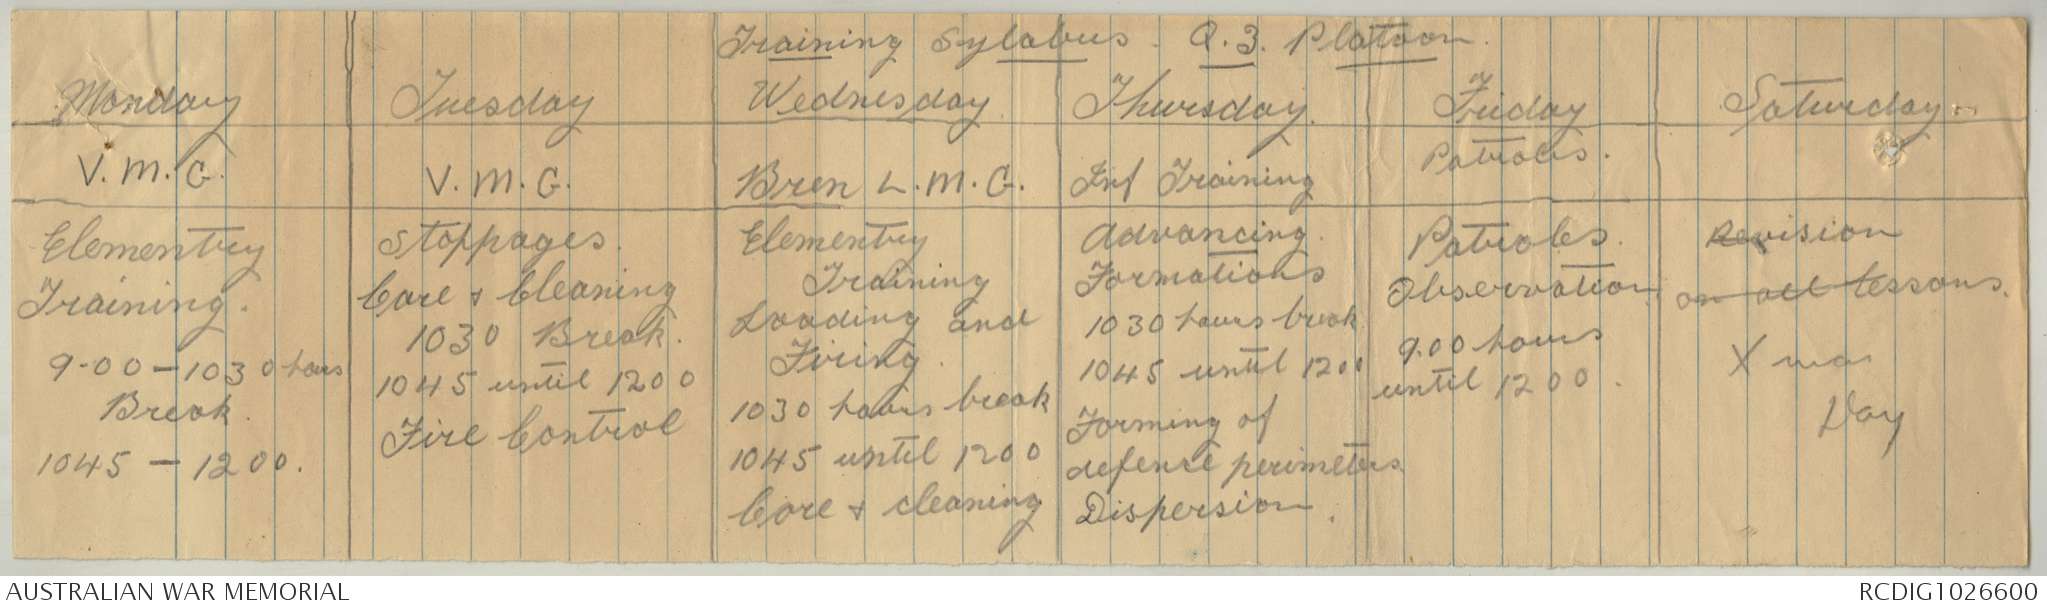 Training Sylabus. Q.3. Platoon.
Monday
V.M.G.
Elementry
Training.
9-00 - 1030 hours
Break.
1045 - 1200.
Tuesday
V.M.G.
Stoppages.
Care & Cleaning
1030 Break.
1045 until 1200
Fire Control
Wednesday
Bren L.M.G.
Elementry
Training
Loading and
Firing.
1030 hours break
1045 until 1200
Care & cleaning
Thursday.
Inf Training
Advancing.
Formations
1030 hours break
1045 until 1200
Forming of
defence perimeters
Dispersion.
Friday
Patroles.
Patroles.
Observation.
9.00 hours
until 1200.
Saturday
Revision
on all lessons.
Xmas
Day
AUSTRALIAN WAR MEMORIAL
RCDIG1026600